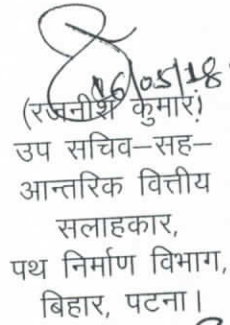 16/05/18
(रजनीश कुमार)
उप सचिव–सह–
आन्तरिक वित्तीय
सलाहकार,
पथ निर्माण विभाग,
बिहार, पटना।